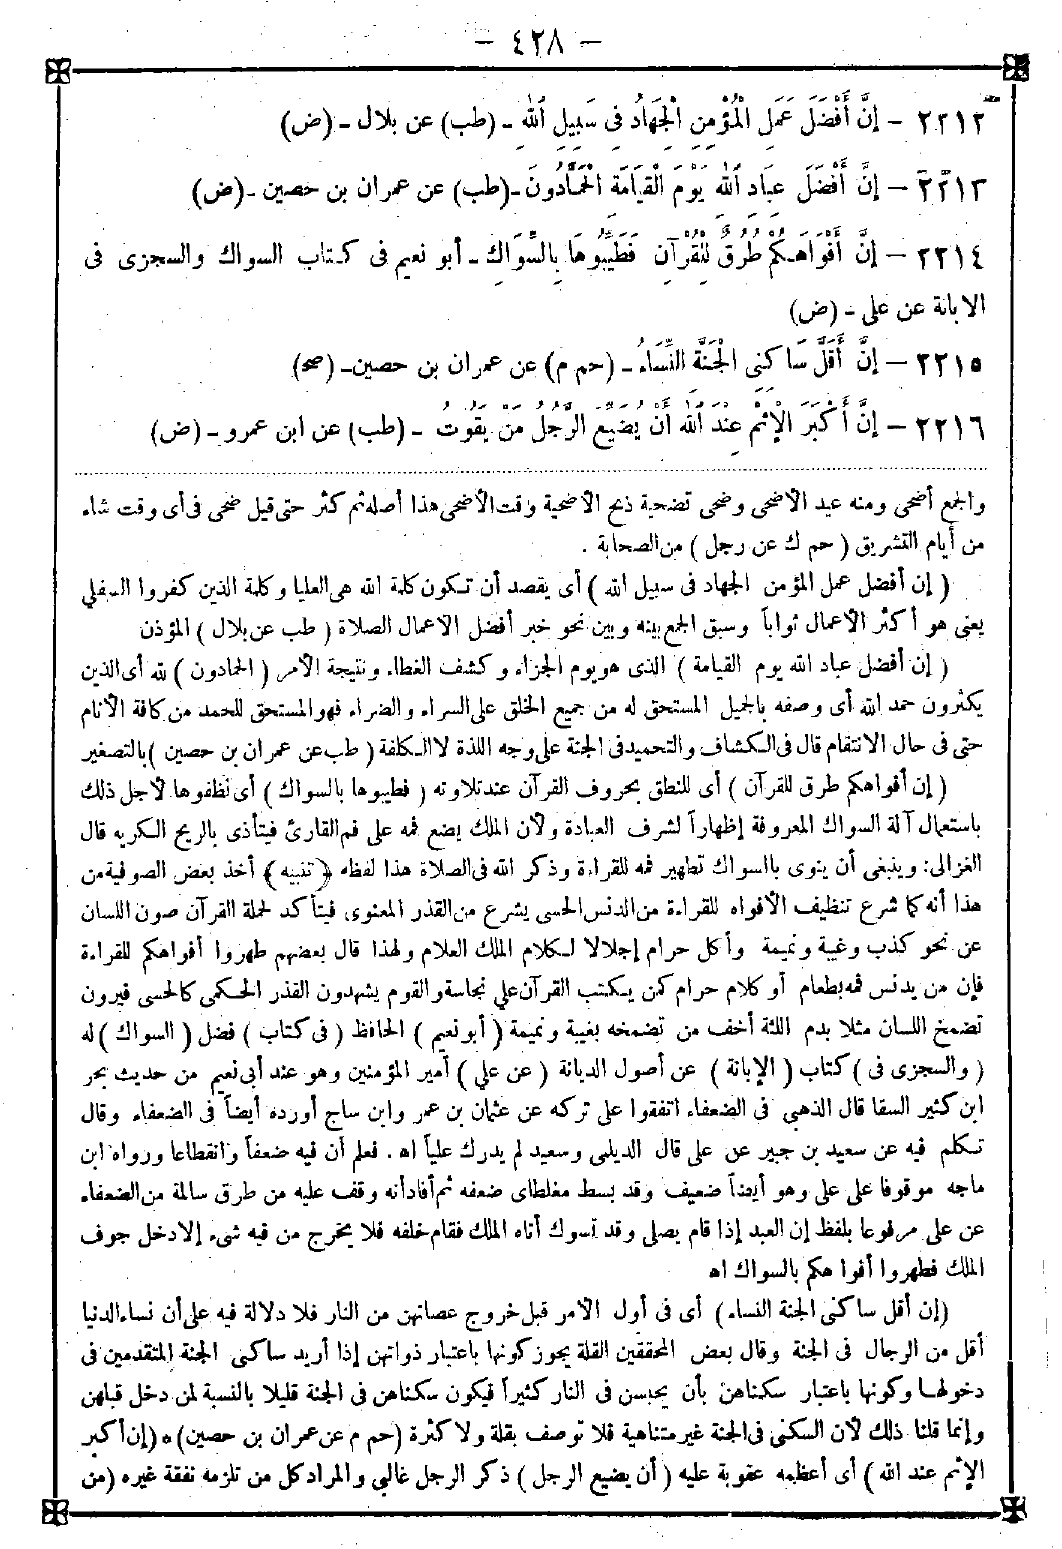 - ٤٢٨ -
٢٢١٢ - إِنَّ أَفْضَلَ عَمَلِ الْمُؤْمِنِ الْجِهَادُ فِى سَبِيلِ اللهِ - (طب) عن بلال - (ض)
٢٢١٣ - إِنَّ أَفْضَلَ عِبَادِ اللهِ يَوْمَ الْقِيَامَةِ الْحَمَّادُونَ - (طب) عن عمران بن حصين - (ض)
٢٢١٤ - إِنَّ أَفْوَاهَكُمْ طُرُقٌ لِلْقُرْآنِ فَطَيِّبُوهَا بِالسِّوَاكِ - أبو نعيم فى كتاب السواك والسجزى فى
الابانة عن على - (ض)
٢٢١٥ - إِنَّ أَقَلَّ سَاكِنِى الْجَنَّةِ النِّسَاءُ - (حم م) عن عمران بن حصين - (صح)
٢٢١٦ - إِنَّ أَكْبَرَ الْإِثْمِ عِنْدَ اللهِ أَنْ يُضَيِّعَ الرَّجُلُ مَنْ يَقُوتُ - (طب) عن ابن عمرو - (ض)
والجمع أضحى ومنه عيد الأضحى وضحى تضحية ذبح الأضحية وقت الأضحى هذا أصله ثم كثر حتى قيل ضحى فى أى وقت شاء
من أيام التشريق ( حم ك عن رجل ) من الصحابة .
( إن أفضل عمل المؤمن الجهاد فى سبيل الله ) أى يقصد أن تكون كلمة الله هى العليا وكلمة الذين كفروا السفلى
يعنى هو أكثر الأعمال ثواباً وسبق الجمع بينه وبين نحو خبر أفضل الاعمال الصلاة ( طب عن بلال ) المؤذن
( إن أفضل عباد الله يوم القيامة ) الذى هو يوم الجزاء وكشف الغطاء ونتيجة الأمر ( الحمادون ) لله أى الذين
يكثرون حمد الله أى وصفه بالجميل المستحق له من جميع الخلق على السراء والضراء فهو المستحق للحمد من كافة الأنام
حتى فى حال الانتقام قال فى الكشاف والتحميد فى الجنة على وجه اللذة لا الكلفة ( طب عن عمران بن حصين ) بالتصغير
( إن أفواهكم طرق للقرآن ) أى للنطق بحروف القرآن عند تلاوته ( فطيبوها بالسواك ) أى نظفوها لأجل ذلك
باستعمال آلة السواك المعروفة إظهاراً لشرف العبادة ولأن الملك يضع فمه على فم القارئ فيتأذى بالريح الكريه قال
الغزالى : وينبغى أن ينوى بالسواك تطهير فمه للقراءة وذكر الله فى الصلاة هذا لفظه ﴿ تنبيه ﴾ أخذ بعض الصوفية من
هذا أنه كما شرع تنظيف الأفواه للقراءة من الدنس الحسى يشرع من القذر المعنوى فيتأكد لحملة القرآن صون اللسان
عن نحو كذب وغيبة ونميمة وأكل حرام إجلالا لكلام الملك العلام ولهذا قال بعضهم طهروا أفواهكم للقراءة
فإن من يدنس فمه بطعام أو كلام حرام كمن يكتب القرآن على نجاسة والقوم يشهدون القذر الحكمى كالحسى فيرون
تضمخ اللسان مثلا بدم اللثة أخف من تضمخه بغيبة ونميمة ( أبو نعيم ) الحافظ ( فى كتاب ) فضل ( السواك ) له
( والسجزى فى ) كتاب ( الإبانة ) عن أصول الديانة ( عن على ) أمير المؤمنين وهو عند أبى نعيم من حديث بحر
ابن كثير السقا قال الذهبى فى الضعفاء اتفقوا على تركه عن عثمان بن عمر وابن ساج أورده أيضاً فى الضعفاء وقال
تكلم فيه عن سعيد بن جبير عن على قال الديلمى وسعيد لم يدرك علياً اه . فعلم أن فيه ضعفاً وانقطاعا ورواه ابن
ماجه موقوفا على على وهو أيضاً ضعيف وقد بسط مغلطاى ضعفه ثم أفاد أنه وقف عليه من طرق سالمة من الضعفاء
عن على مرفوعا بلفظ إن العبد إذا قام يصلى وقد تسوك أتاه الملك فقام خلفه فلا يخرج من فيه شىء إلا دخل جوف
الملك فطهروا أفواهكم بالسواك اه
( إن أقل ساكنى الجنة النساء ) أى فى أول الامر قبل خروج عصاتهن من النار فلا دلالة فيه على أن نساء الدنيا
أقل من الرجال فى الجنة وقال بعض المحققين القلة يجوز كونها باعتبار ذواتهن إذا أريد ساكنى الجنة المتقدمين فى
دخولها وكونها باعتبار سكناهن بأن يحبسن فى النار كثيراً فيكون سكناهن فى الجنة قليلا بالنسبة لمن دخل قبلهن
وإنما قلنا ذلك لأن السكنى فى الجنة غير متناهية فلا توصف بقلة ولا كثرة ( حم م عن عمران بن حصين ) * ( إن أكبر
الإثم عند الله ) أى أعظمه عقوبة عليه ( أن يضيع الرجل ) ذكر الرجل غالبى والمراد كل من تلزمه نفقة غيره ( من